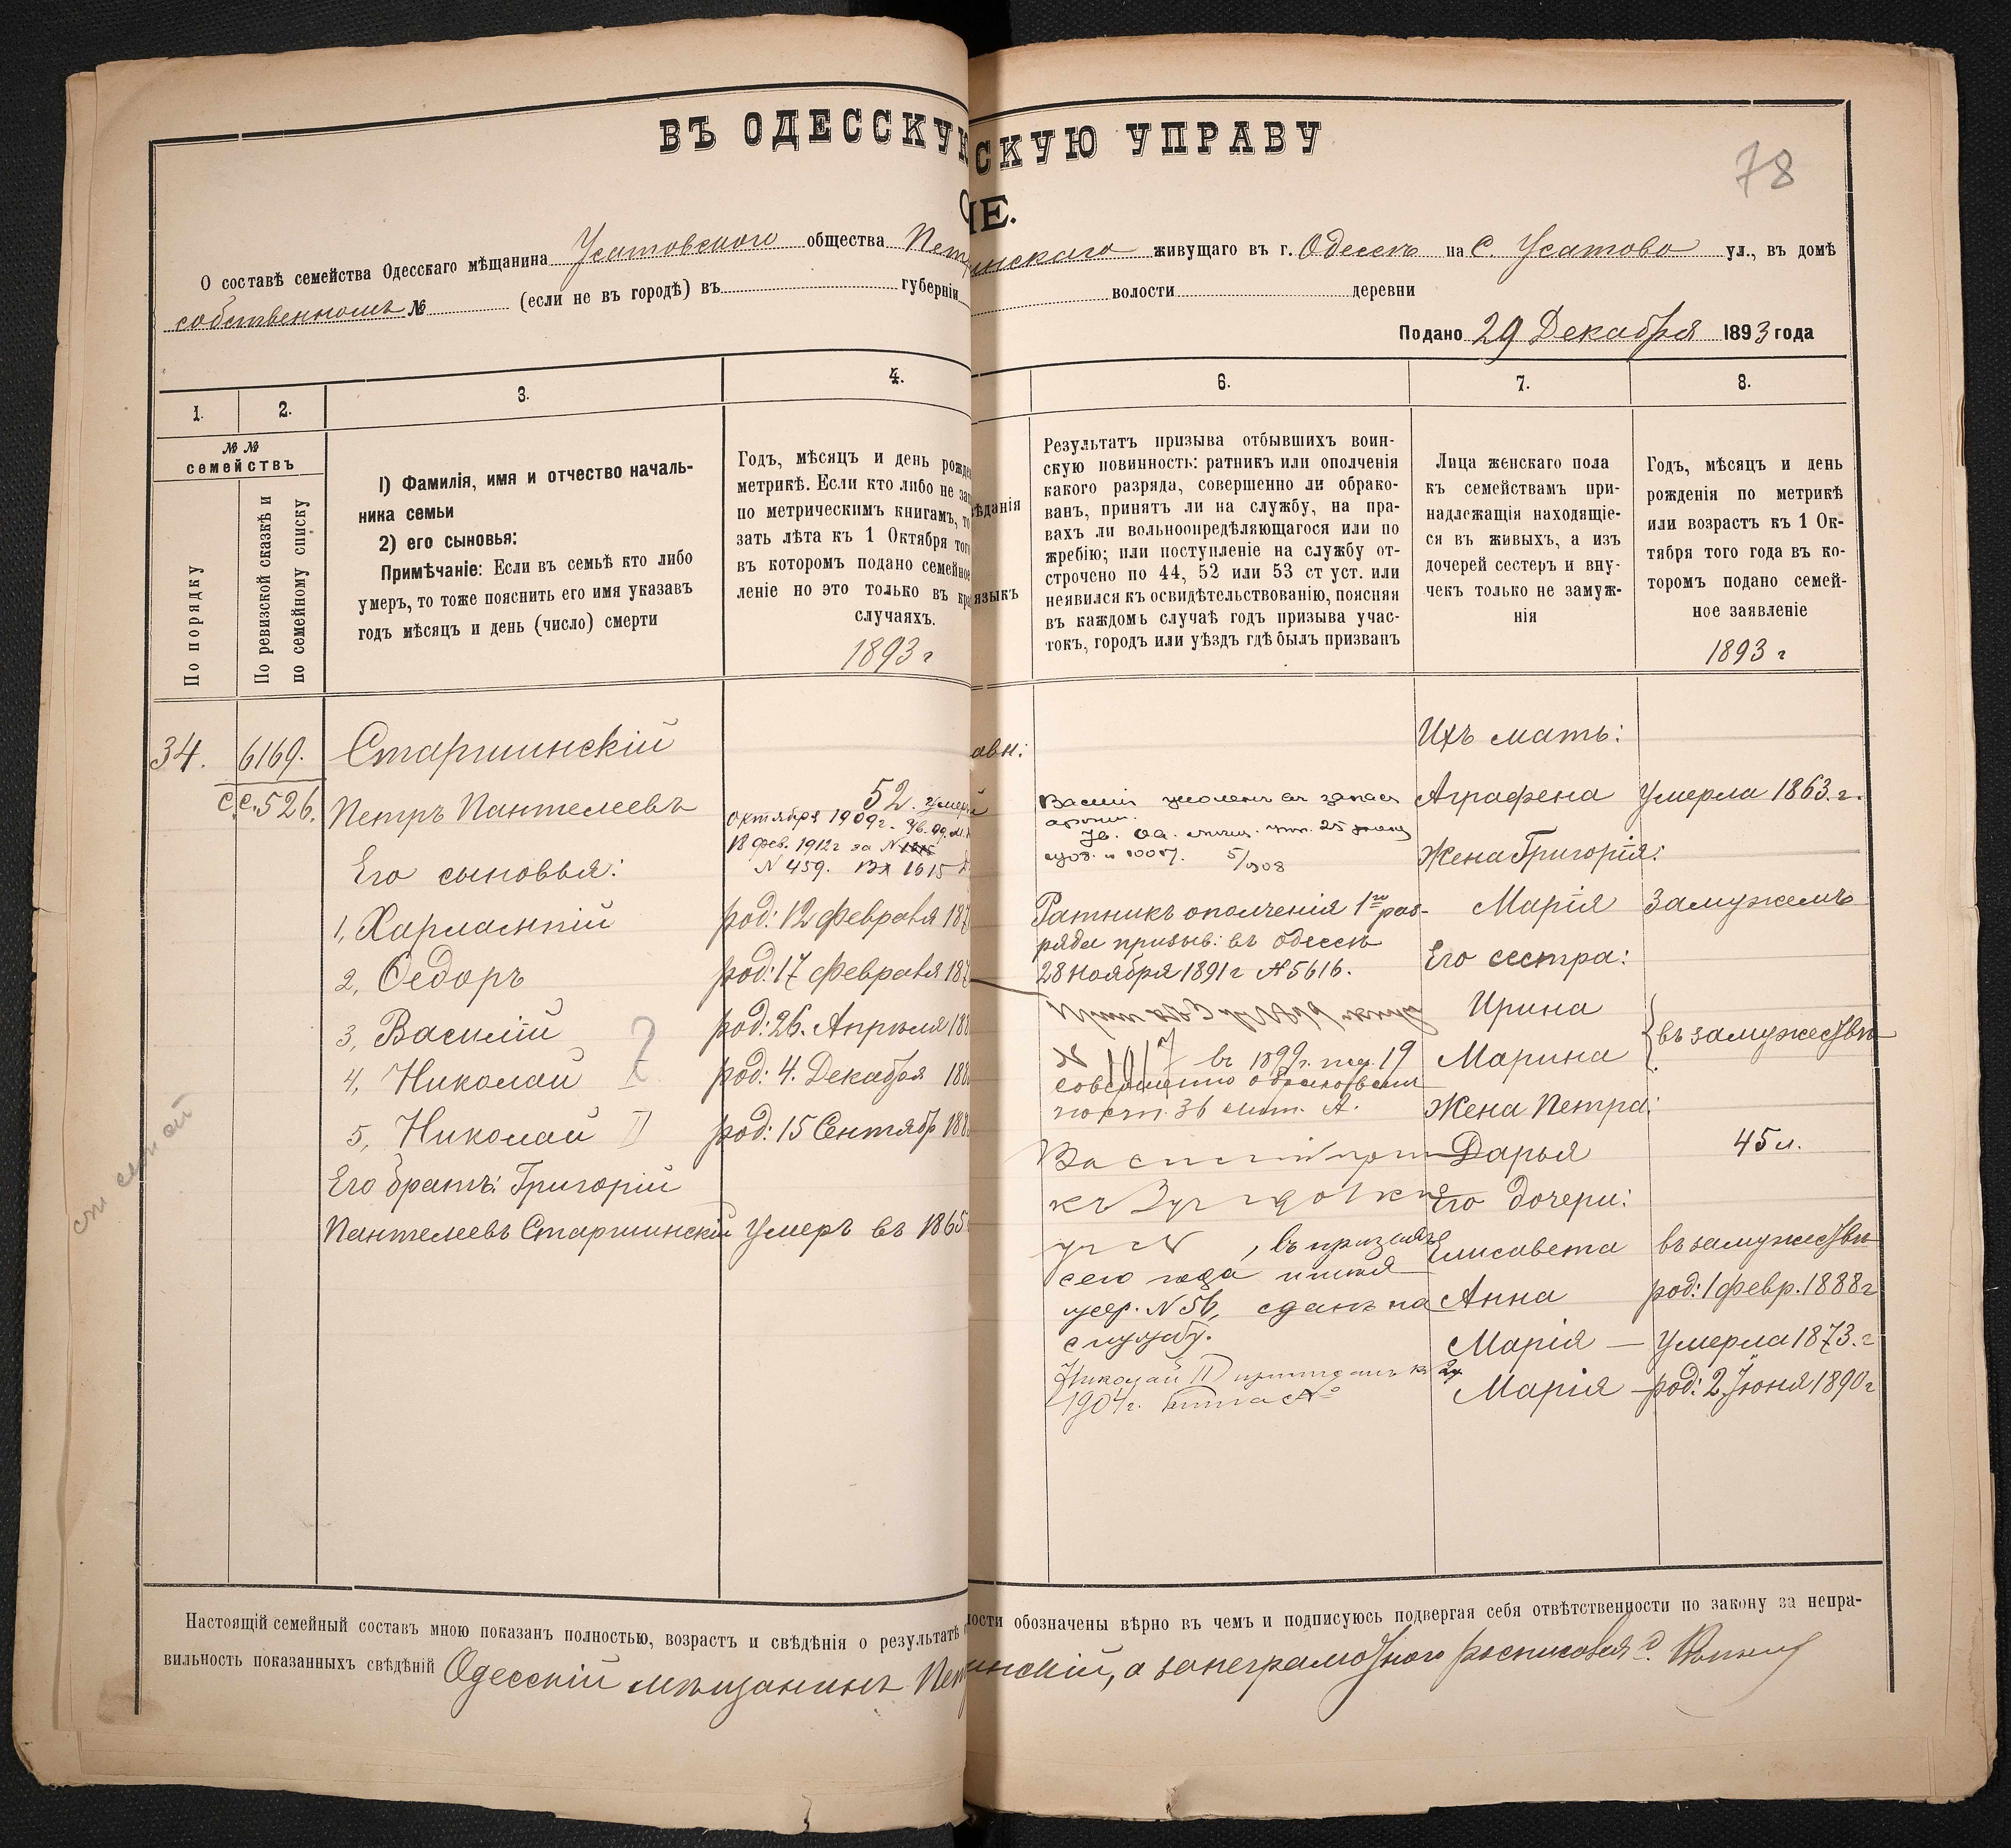 ВЪ ОДЕССКУЮ
СКУЮ УПРАВУ
78
ІЕ.
О составѣ семейства Одесскаго мѣщанина Усатовскаго общества Пет
инскаго живущаго въ г. Одессѣ на С. Усатово ул., въ домѣ
собственномъ № (если не въ городѣ) въ губерніи
волости деревни
Подано 29 Декабря 1893 года
1.
2.
3.
4.
6.
7.
8.
№ №
семействъ
По порядку
По ревизской сказкѣ и
по семейному списку
1) Фамилія, имя и отчество началь-
ника семьи
2) его сыновья:
Примѣчаніе: Если въ семьѣ кто либо
умеръ, то тоже пояснить его имя указавъ
годъ мѣсяцъ и день (число) смерти
Годъ, мѣсяцъ и день рожде
метрикѣ. Если кто либо не зап
по метрическимъ книгамъ, то
зать лѣта къ 1 Октября того
въ которомъ подано семейное
леніе но это только въ кра
случаяхъ.
1893 г
ѣданія
языкъ
Результатъ призыва отбывшихъ воин-
скую повинность: ратникъ или ополченія
какого разряда, совершенно ли обрако-
ванъ, принятъ ли на службу, на пра-
вахъ ли вольноопредѣляющагося или по
жребію; или поступленіе на службу от-
строчено по 44, 52 или 53 ст уст. или
неявился къ освидѣтельствованію, поясняя
въ каждомъ случаѣ годъ призыва учас-
токъ, городъ или уѣздъ гдѣ былъ призванъ
Лица женскаго пола
къ семействамъ при-
надлежащія находящіе-
ся въ живыхъ, а изъ
дочерей сестеръ и вну-
чекъ только не замуж-
нія
Годъ, мѣсяцъ и день
рожденія по метрикѣ
или возрастъ къ 1 Ок-
тября того года въ ко-
торомъ подано семей-
ное заявленіе
1893 г
34. 6169. Старшинскій
с.с. 526. Петръ Пантелеевъ 52. Умеръ
октября 1909г.
18 фев. 1912 г за № 1615
№ 459. Вх 1615
Его сыновья:
1, Харлампій род: 12 Февраля 187
2, Федоръ род: 17 Февраля 187
3, Василій род: 26. Апрѣля 188
4, Николай I род: 4. Декабря 188
5, Николай II род: 15 Сентябр 188
Его братъ: Григорій
Пантелеевъ Старшинскій Умеръ въ 1865
авн:
Василій уволенъ въ запасъ
арміи.
5/908
Ратникъ ополченія 1го раз-
ряда призыв: въ Одессѣ
28 Ноября 1891 г № 5616.
№ 1017 въ 1899 г. 19
совершенно обракованъ
36 лит. А.
Василій
, въ призывъ
сего года
№ 56, сданъ на
службу.
Николай II
1904 г. №
Ихъ мать:
Аграфена Умерла 1863. г.
Жена Григорія:
Марія Замужемъ
Его сестра:
Ирина
Марина въ замужествѣ
Жена Петра:
Дарья 45 л.
Его дочери:
Елисавета въ замужествѣ
Анна род: 1 февр. 1888 г
Марія — Умерла 1873. г
Марія — род: 2 Іюня 1890 г
Настоящій семейный составъ мною показанъ полностью, возрастъ и свѣдѣнія о результатѣ
ности обозначены вѣрно въ чемъ и подписуюсь подвергая себя отвѣтственности по закону за непра-
вильность показанныхъ свѣдѣній Одесскій мѣщанинъ Пет
инскій, а за неграмотнаго росписался